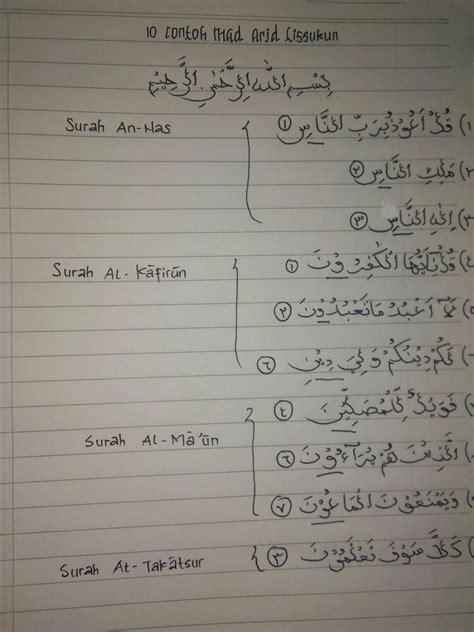 10 Contoh Mad Arid Lissukun
بِسْمِ اللهِ الرَّحْمٰنِ الرَّحِيْمِ
Surah An-Nas
١) قُلْ اَعُوْذُ بِرَبِّ النَّاسِ ①
٢) مَلِكِ النَّاسِ ②
٣) اِلٰهِ النَّاسِ ③
Surah AL-Kāfirūn
٤) قُلْ يٰٓاَيُّهَا الْكٰفِرُوْنَ ①
٥) لَآ اَعْبُدُ مَا تَعْبُدُوْنَ ②
لَكُمْ دِيْنُكُمْ وَلِيَ دِيْنِ ⑥
Surah AL-Mā'ūn
فَوَيْلٌ لِّلْمُصَلِّيْنَ ④
الَّذِيْنَ هُمْ يُرَآءُوْنَ ⑥
وَيَمْنَعُوْنَ الْمَاعُوْنَ ⑦
Surah At-Takātsur
كَلَّا سَوْفَ تَعْلَمُوْنَ ③